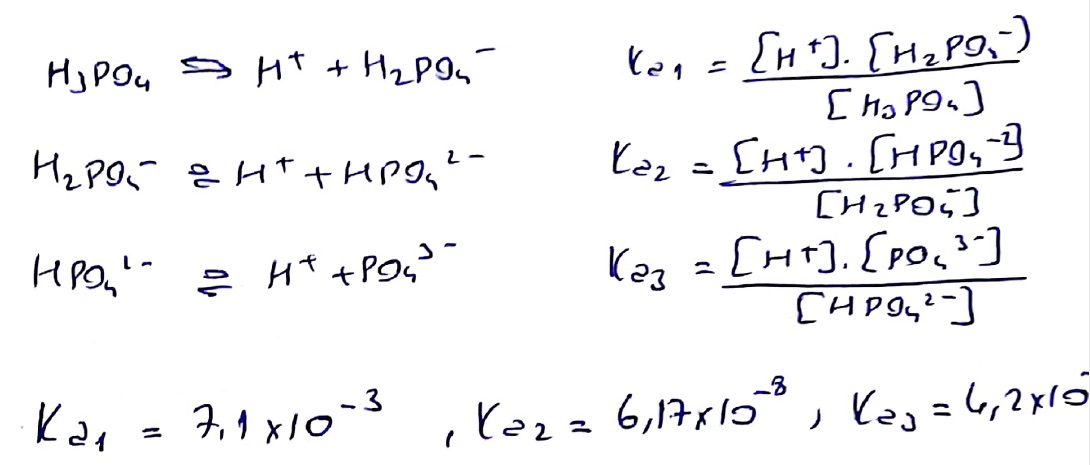 H₃PO₄ ⇌ H⁺ + H₂PO₄⁻ Ka₁ = [H⁺].[H₂PO₄⁻] / [H₃PO₄]
H₂PO₄⁻ ⇌ H⁺ + HPO₄²⁻ Ka₂ = [H⁺].[HPO₄⁻²] / [H₂PO₄⁻]
HPO₄²⁻ ⇌ H⁺ + PO₄³⁻ Ka₃ = [H⁺].[PO₄³⁻] / [HPO₄²⁻]
Ka₁ = 7,1x10⁻³ , Ka₂ = 6,17x10⁻⁸ , Ka₃ = 4,2x10⁻